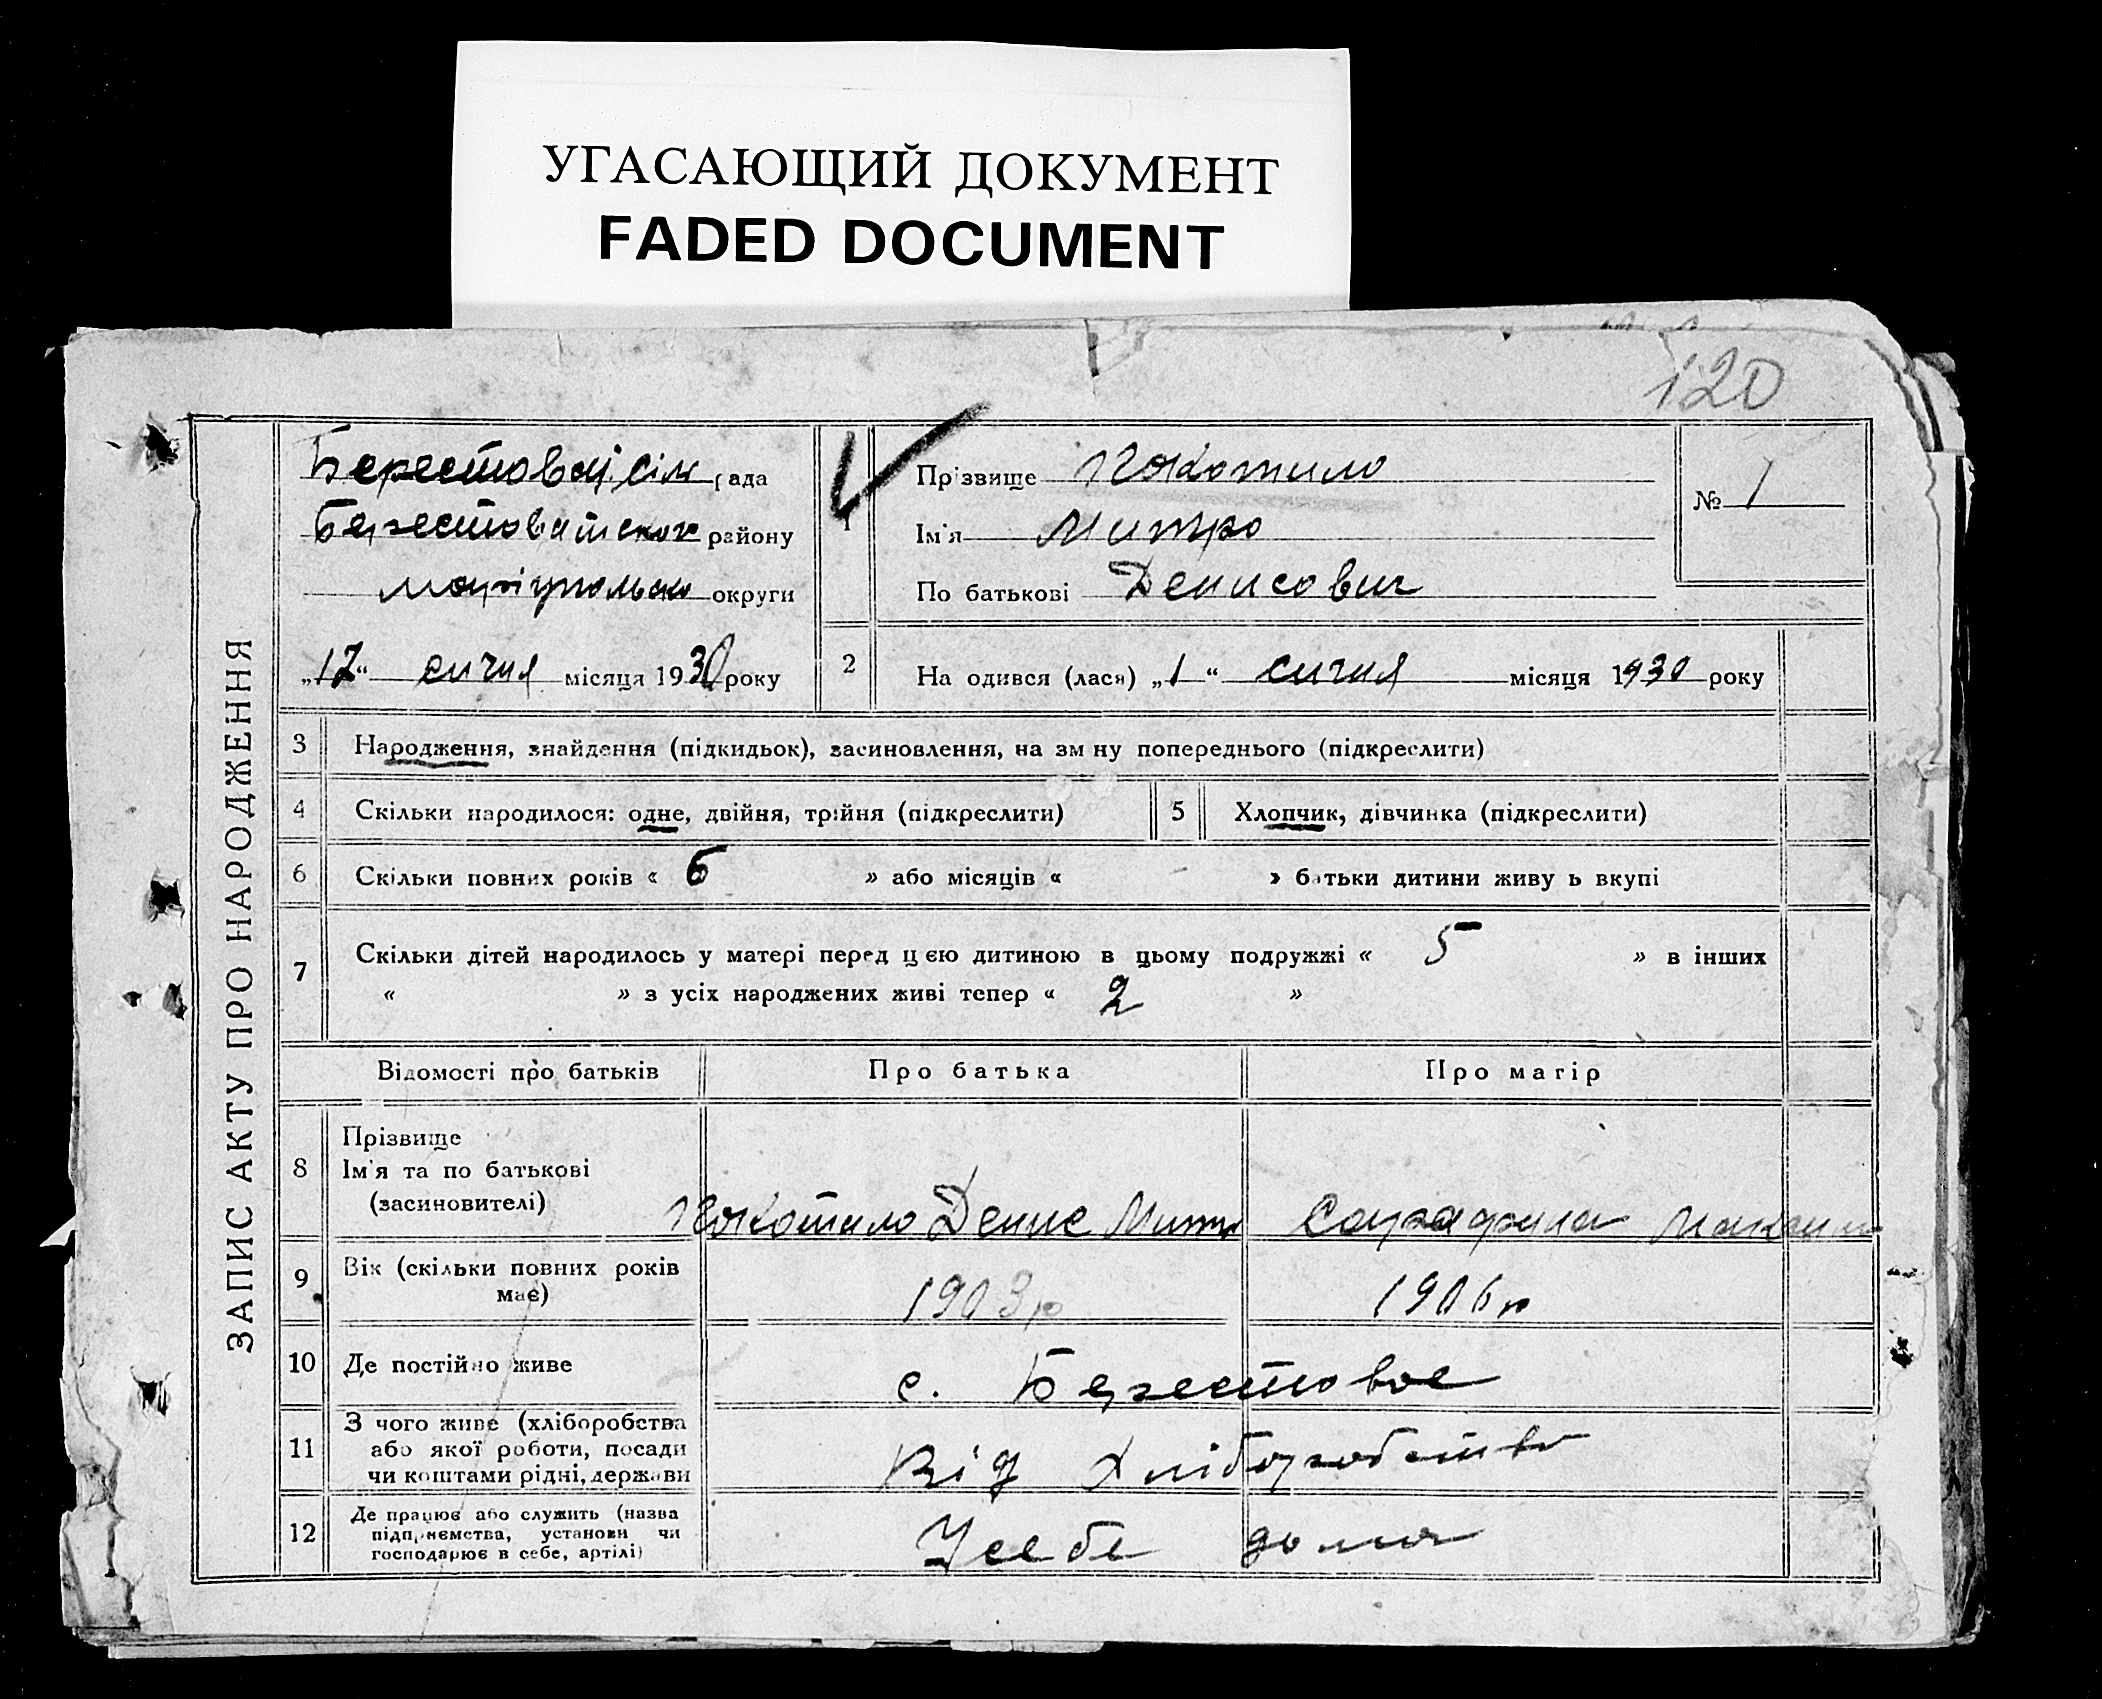 УГАСАЮЩИЙ ДОКУМЕНТ
FADED DOCUMENT
120
ЗАПИС АКТУ ПРО НАРОДЖЕННЯ
Берестовай. сіл рада
району
округи
„12“ січня місяця 1930 року
1
Прізвище Покотило
Ім'я Митро
По батькові Денисович
№ 1
2
На одився (лася) „1“ січня місяця 1930 року
3 Народження, знайдення (підкидьок), засиновлення, на зм ну попереднього (підкреслити)
4 Скільки народилося: одне, двійня, трійня (підкреслити)
5 Хлопчик, дівчинка (підкреслити)
6 Скільки повних років « 6 » або місяців « » батьки дитини живу ь вкупі
7 Скільки дітей народилось у матері перед цією дитиною в цьому подружжі « 5 » в інших
« » з усіх народжених живі тепер « 2 »
Відомості про батьків Про батька Про матір
8 Прізвище
Ім'я та по батькові
(засиновителі)
Покотило Денис Митр
9 Вік (скільки повних років
має)
1903р 1906р
10 Де постійно живе с. Берестовое
11 З чого живе (хліборобства
або якої роботи, посади
чи коштами рідні, держави
Від хліборобства
12 Де працює або служить (назва
підприємства, установи чи
господарює в себе, артілі)
У себе дома